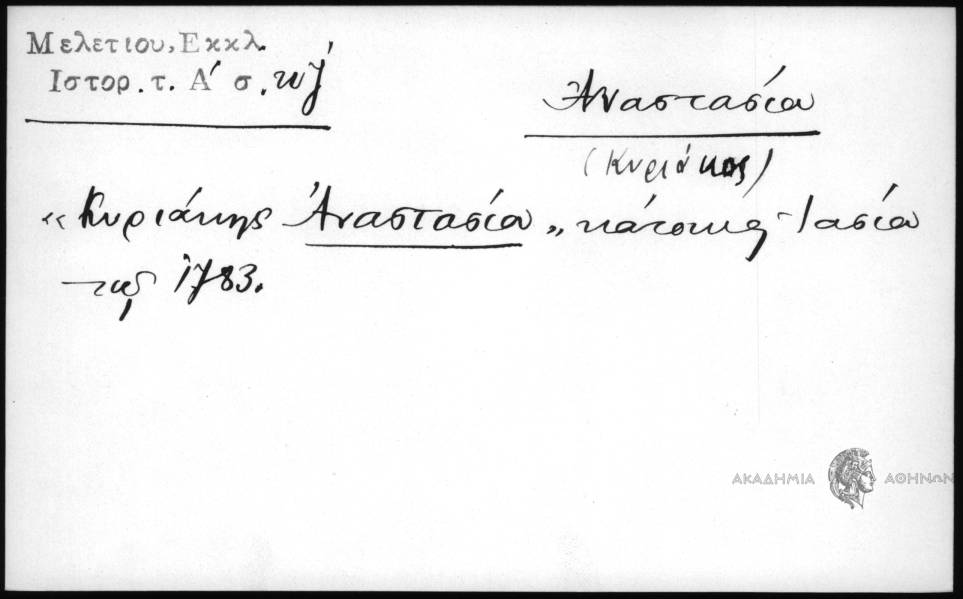 Μελετιου, Εκκλ.
Ιστορ. τ. Α' σ. κζ'
Αναστασία
(Κυριάκος)
«Κυριάκης Ἀναστασία» κάτοικος Ἰασία
τῷ 1783.
ΑΚΑΔΗΜΙΑ ΑΘΗΝΩΝ